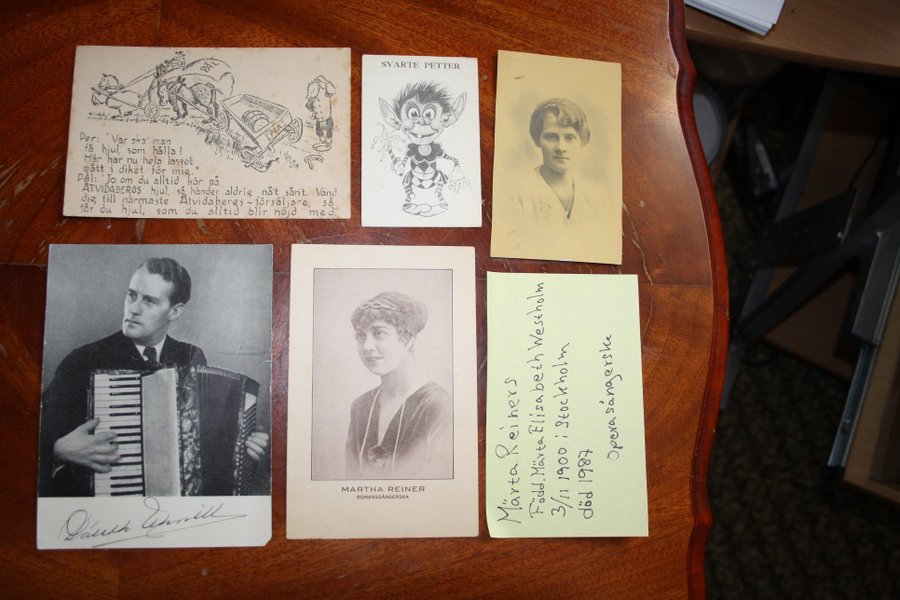 PÅL
Per: "Var ska' man
få hjul, som hålla?
Här har nu hela lasset
gått i diket för mig."
Pål: "Jo, om du alltid kör på
ÅTVIDABERGS hjul, så händer aldrig nåt sånt. Vänd
dig till närmaste Åtvidabergs-försäljare, så
får du hjul, som du alltid blir nöjd med."
SVARTE PETTER
MARTHA REINER
ROMANSSÅNGERSKA
Märta Reiners
Född. Märta Elisabeth Westholm
3/11 1900 i Stockholm
död 1987
Operasångerska